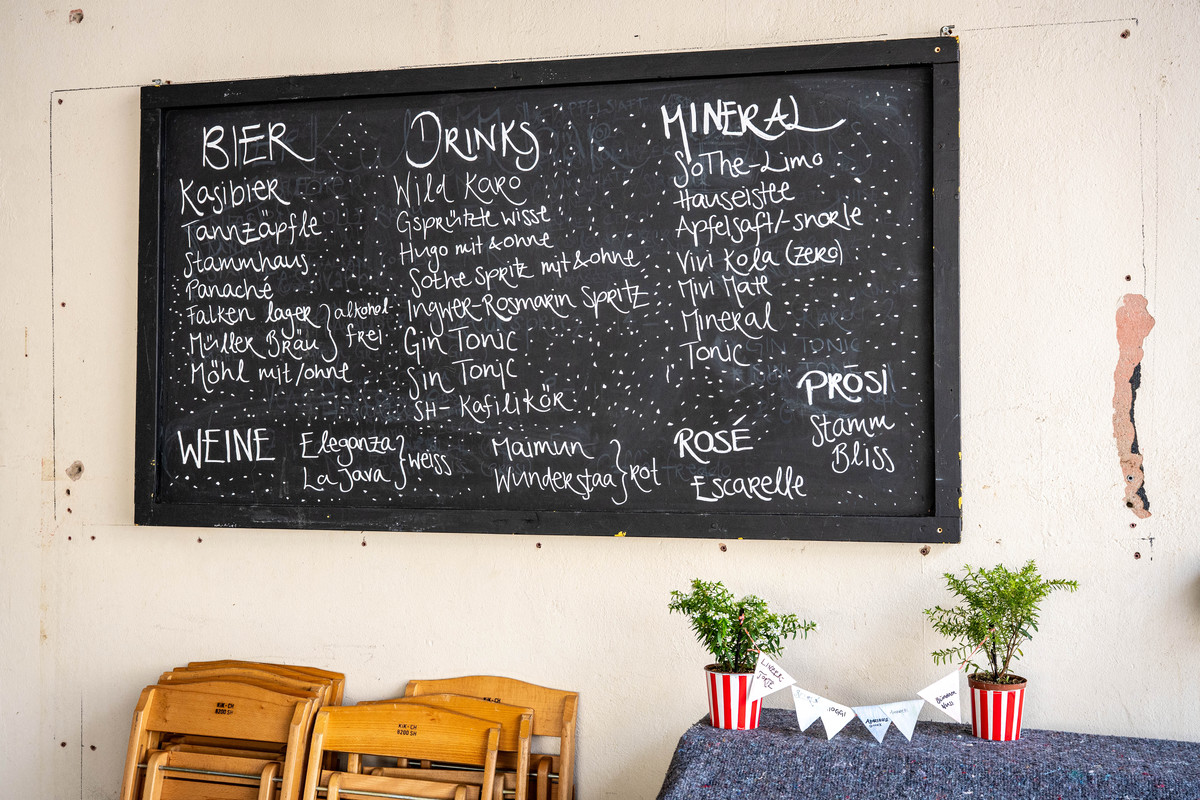 BIER
Kasibier
Tannzäpfle
Stammhaus
Panaché
Falken lager } alkohol-
Müller Bräu } frei
Möhl mit/ohne
DRINKS
Wild Karo
Gsprützte wisse
Hugo mit & ohne
Sothe Spritz mit & ohne
Ingwer-Rosmarin Spritz
Gin Tonic
Sin Tonic
SH-Kafilikör
MINERAL
SoThe-Limo
Hauseistee
Apfelsaft/-shorle
Vivi Kola (zero)
Mivi Mate
Mineral
Tonic
PRÖSI
Stamm
Bliss
WEINE
Eleganza
La Java } weiss
Maimun
Wunderstaa } rot
ROSÉ
Escarelle
GIN TONIC
KiK-CH
8200 SH
KiK-CH
8200 SH
LINZER
TORTE